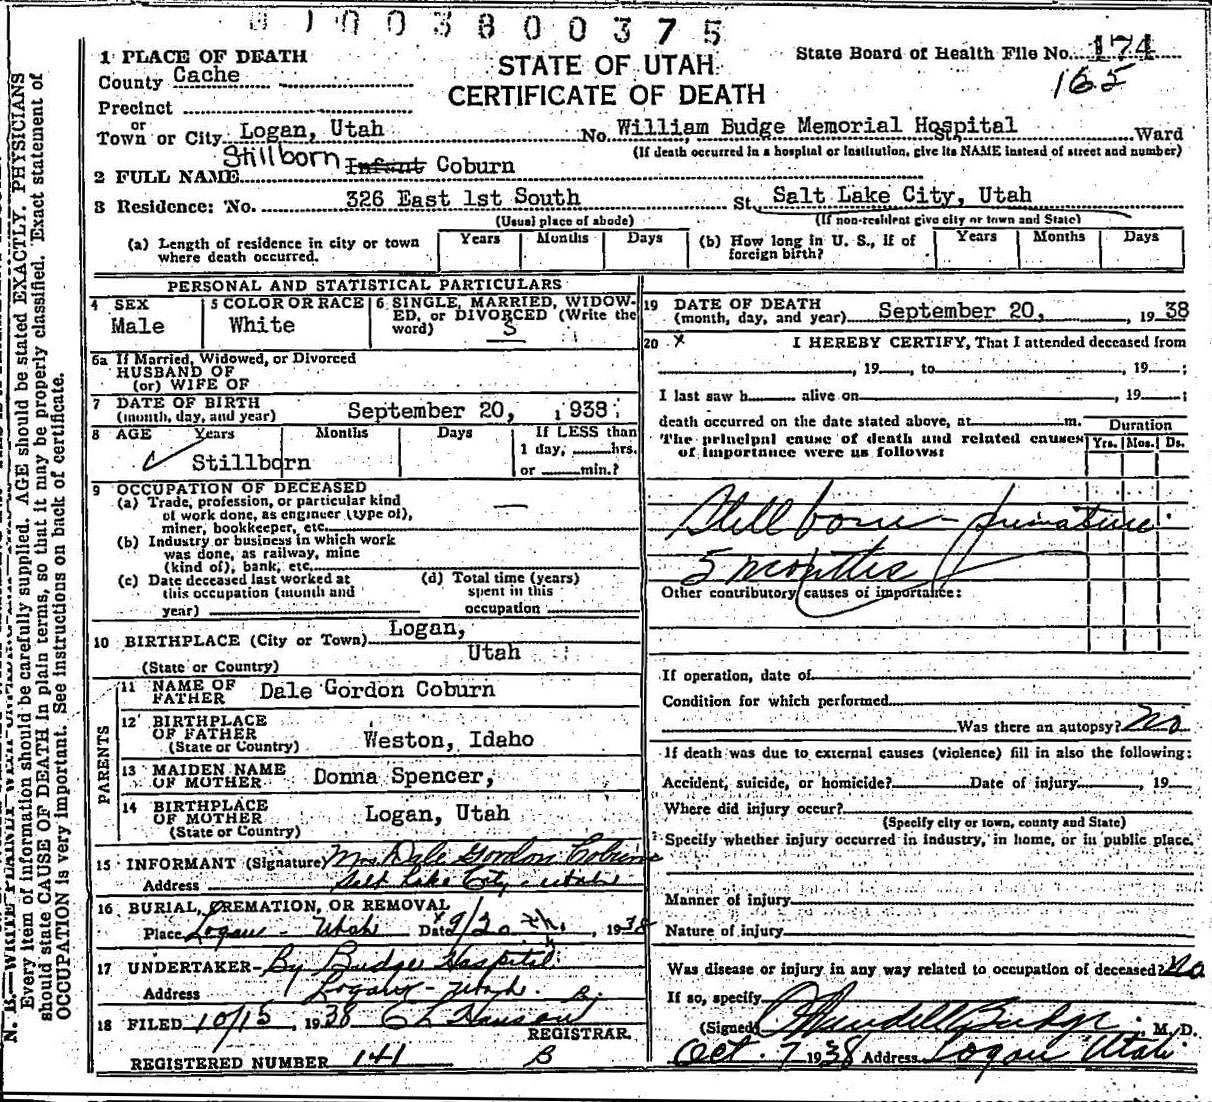 01003800375
1 PLACE OF DEATH
County Cache
STATE OF UTAH
CERTIFICATE OF DEATH
State Board of Health File No. 174
165
Precinct
or
Town or City Logan, Utah No. William Budge Memorial Hospital St. Ward
(If death occurred in a hospital or institution, give its NAME instead of street and number)
2 FULL NAME Stillborn Infant Coburn
3 Residence: No. 326 East 1st South St. Salt Lake City, Utah
(Usual place of abode) (If non-resident give city or town and State)
(a) Length of residence in city or town where death occurred. Years Months Days
(b) How long in U. S., if of foreign birth? Years Months Days
PERSONAL AND STATISTICAL PARTICULARS
4 SEX
Male
5 COLOR OR RACE
White
6 SINGLE, MARRIED, WIDOWED, or DIVORCED (Write the word) S
6a If Married, Widowed, or Divorced
HUSBAND OF
(or) WIFE OF
7 DATE OF BIRTH
(month, day, and year) September 20, 1938
8 AGE Years Months Days If LESS than
1 day, hrs.
or min.?
Stillborn
9 OCCUPATION OF DECEASED
(a) Trade, profession, or particular kind
of work done, as engineer (type of),
miner, bookkeeper, etc. —
(b) Industry or business in which work
was done, as railway, mine
(kind of), bank, etc.
(c) Date deceased last worked at
this occupation (month and
year)
(d) Total time (years)
spent in this
occupation
10 BIRTHPLACE (City or Town) Logan,
(State or Country) Utah
PARENTS
11 NAME OF FATHER Dale Gordon Coburn
12 BIRTHPLACE OF FATHER
(State or Country) Weston, Idaho
13 MAIDEN NAME OF MOTHER Donna Spencer,
14 BIRTHPLACE OF MOTHER
(State or Country) Logan, Utah
15 INFORMANT (Signature) Mrs. Dale Gordon Coburn
Address Salt Lake City - Utah
16 BURIAL, CREMATION, OR REMOVAL
Place Logan - Utah Date 9/20 th, 1938
17 UNDERTAKER By Budge Hospital
Address Logan - Utah.
18 FILED 10/15, 1938 C L Hanson
REGISTRAR.
REGISTERED NUMBER 141 B
19 DATE OF DEATH
(month, day, and year) September 20, 1938
20 x I HEREBY CERTIFY, That I attended deceased from
, 19 , to , 19 ;
I last saw h alive on , 19 ;
death occurred on the date stated above, at m.
The principal cause of death and related causes
of importance were as follows:
Duration
Yrs. Mos. Ds.
Stillborn - premature
5 months
Other contributory causes of importance:
If operation, date of
Condition for which performed
Was there an autopsy? No
If death was due to external causes (violence) fill in also the following:
Accident, suicide, or homicide? Date of injury , 19
Where did injury occur?
(Specify city or town, county and State)
Specify whether injury occurred in industry, in home, or in public place.
Manner of injury
Nature of injury
Was disease or injury in any way related to occupation of deceased? No
If so, specify
(Signed) Budge, M. D.
Oct. 7 1938 Address Logan Utah
Every item of information should be carefully supplied. AGE should be stated EXACTLY. PHYSICIANS
should state CAUSE OF DEATH in plain terms, so that it may be properly classified. Exact statement of
OCCUPATION is very important. See instructions on back of certificate.